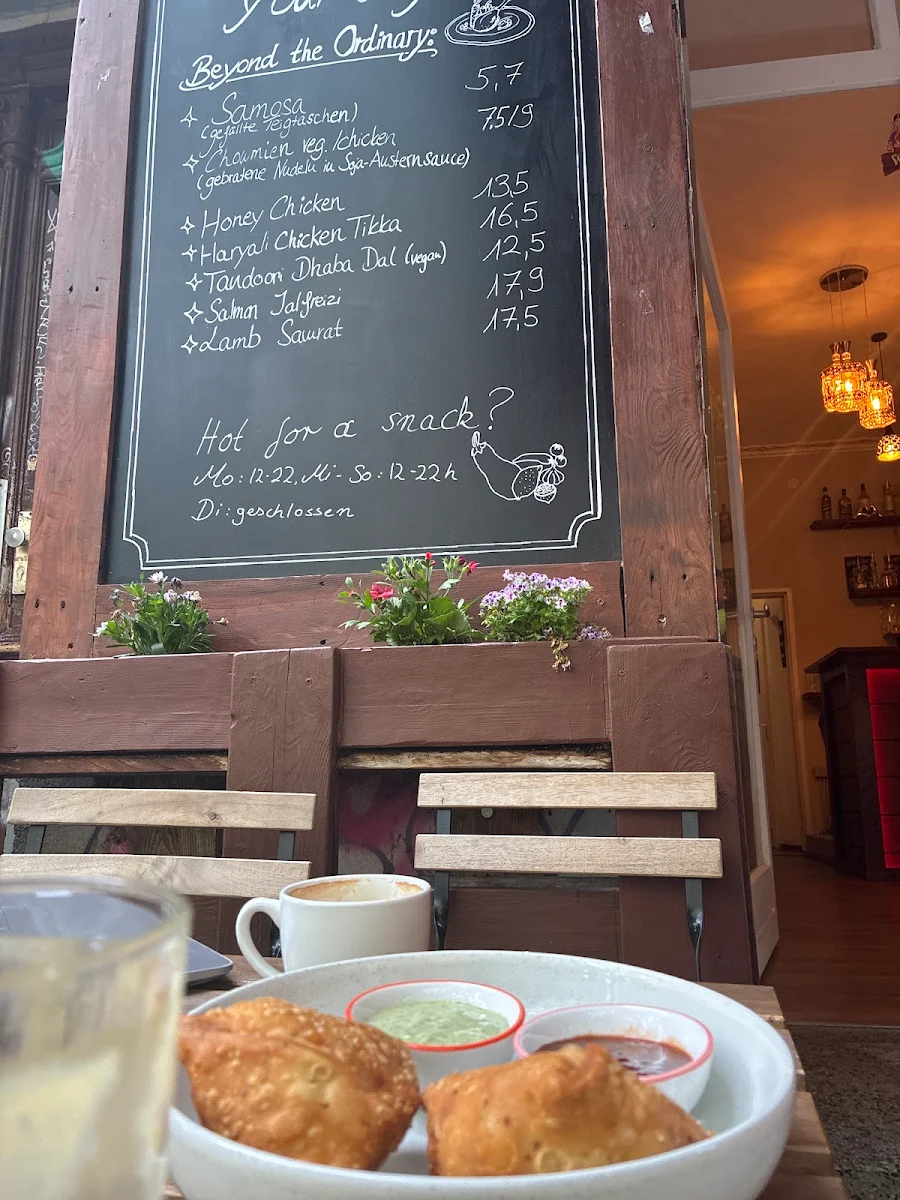 Beyond the Ordinary:
Samosa 5,7
(gefüllte Teigtaschen)
Choumien veg. /chicken 7,5/9
(gebratene Nudeln in Soja-Austernsauce)
Honey Chicken 13,5
Haryali Chicken Tikka 16,5
Tandoori Dhaba Dal (vegan) 12,5
Salmon Jalfreizi 17,9
Lamb Saurat 17,5
Hot for a snack?
Mo: 12-22, Mi - So: 12-22h
Di: geschlossen